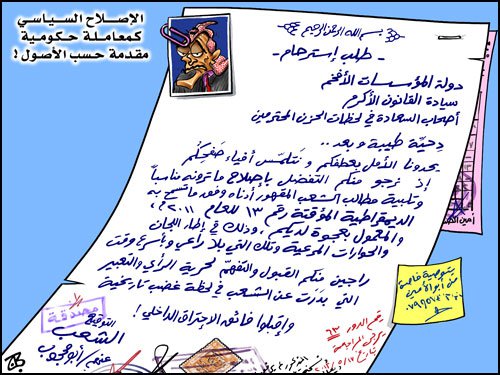 الإصلاح السياسي
كمعاملة حكومية
مقدمة حسب الأصول!
بسم الله الرحمن الرحيم
- طلب إسترحام -
دولة المؤسسات الأفخم
سيادة القانون الأكرم
أصحاب السعادة في لحظات الحزن المحترمين
تحيّة طيبة وبعد ..
يحدونا الأمل بعطفكم ونتلمّس أفياء صفحِكُم
إذ نرجو منكم التفضل بإصلاح ما ترونه مناسباً
وتلبية مطالب الشعب المقهور أدناه وفق ما تسمح به
الديمقراطية المؤقتة رقم ١٣ للعام ٢٠١١م،
والمعمول بعجوة لديكم، وذلك في إطار اللجان
والحوارات المرعية وتلك التي بلا راعي وبأسرع وقت
راجين منكم القبول والتفهّم لحرية الرأي والتعبير
التي بدرت عن الشعب في لحظة غضب تاريخية
وإقبلوا فائق الاحتراق الداخلي!
التوقيع
الشعب
عنهم/أبو محجوب
مصدقة
بتوصية خاصة
من أبو الأمين
رقم الدور ٦٣
يرجى المراجعة